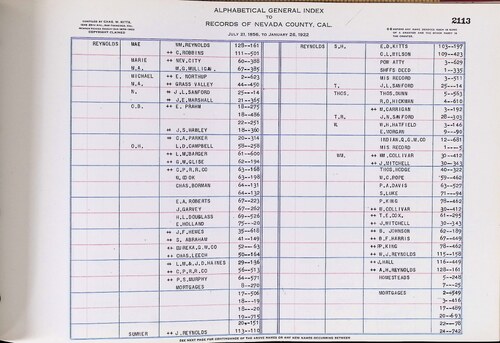 ALPHABETICAL GENERAL INDEX
TO
RECORDS OF NEVADA COUNTY, CAL.
JULY 21, 1856, TO JANUARY 26, 1922
2113
COPYRIGHT CLAIMED
REYNOLDS MAE WM, REYNOLDS 128-161
++ C, ROBBINS 111-501
MARIE ++ NEV, CITY 60-388
M.A. M.G. MULLIGAN 67-385
MICHAEL ++ E. NORTHUP 2-623
M.A. ++ GRASS VALLEY 44-450
N. J.L. SANFORD 25-14
++ J.E. MARSHALL 21-365
O.D. ++ E. PRAHM 18-275
18-486
22-251
++ J.S. HAWLEY 18-360
++ C.A. PARKER 20-314
O.H. L.D. CAMPBELL 58-258
++ L.M. BARGER 61-600
++ G.M. GLISE 62-194
++ C.P.R.R. CO 63-168
63-198
CHAS. BORMAN 64-131
64-132
E.A. ROBERTS 67-223
J. GARVEY 67-262
H.L. DOUGLASS 69-526
E. HOLLAND 75-20
++ J.F. HEWES 35-618
++ S. ABRAHAM 41-149
++ EUREKA, G.M.CO 52-65
++ CHAS. LEECH 50-164
++ L.M.&J.D. HAINES 29-136
++ C.P.R.R. CO 56-513
++ P.S. MURPHY 64-571
MORTGAGES 8-270
17-506
18-19
18-20
19-715
20-151
SUMNER ++ J. REYNOLDS 113-110
REYNOLDS S.H. E.D. KITTS 103-197
C.L. WILSON 109-423
POW ATTY 3-629
SHFFS DEED 1-335
MIS RECORD 3-511
T. J.L. SANFORD 25-14
THOS. THOS. DUNN 5-563
R.D. HICKMAN 4-610
++ M. CARRIGAN 3-192
T.R. J.N. SANFORD 28-303
W. W.H. HATFIELD 3-146
E. MORGAN 9-90
INDIAN, G.G.M.CO 12-681
MIS RECORD 1-1
WM. ++ WM. COLLIVAR 30-412
++ J. MITCHELL 30-343
THOS. HODGE 40-322
M.C. ROPE 59-462
P.A. DAVIS 63-527
S. LUKE 71-94
P. KING 78-462
++ M. COLLIVAR 30-412
++ T.E. COX, 61-295
++ J. MITCHELL 30-343
++ S. JOHNSON 62-189
++ B.F. HARRIS 67-649
++ P. KING 78-462
++ M.J. REYNOLDS 115-158
++ J. HALL 116-449
++ A.H. REYNOLDS 128-161
HOMESTEADS 5-248
7-25
MORTGAGES 2-549
3-416
17-489
20-693
22-70
24-742
SEE NEXT PAGE FOR CONTINUANCE OF THE ABOVE NAMES OR ANY NEW NAMES OCCURRING BETWEEN